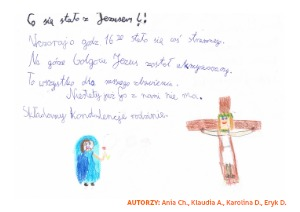 Co się stało z Jezusem?!
Wczoraj o godz 16⁰⁰ stało się coś strasznego.
Na górze Golgocie Jezus został ukrzyżowany.
To wszystko dla naszego zbawienia.
Niestety już go z nami nie ma.
Składamy kondolencje rodzinie.
AUTORZY: Ania Ch., Klaudia A., Karolina D., Eryk D.